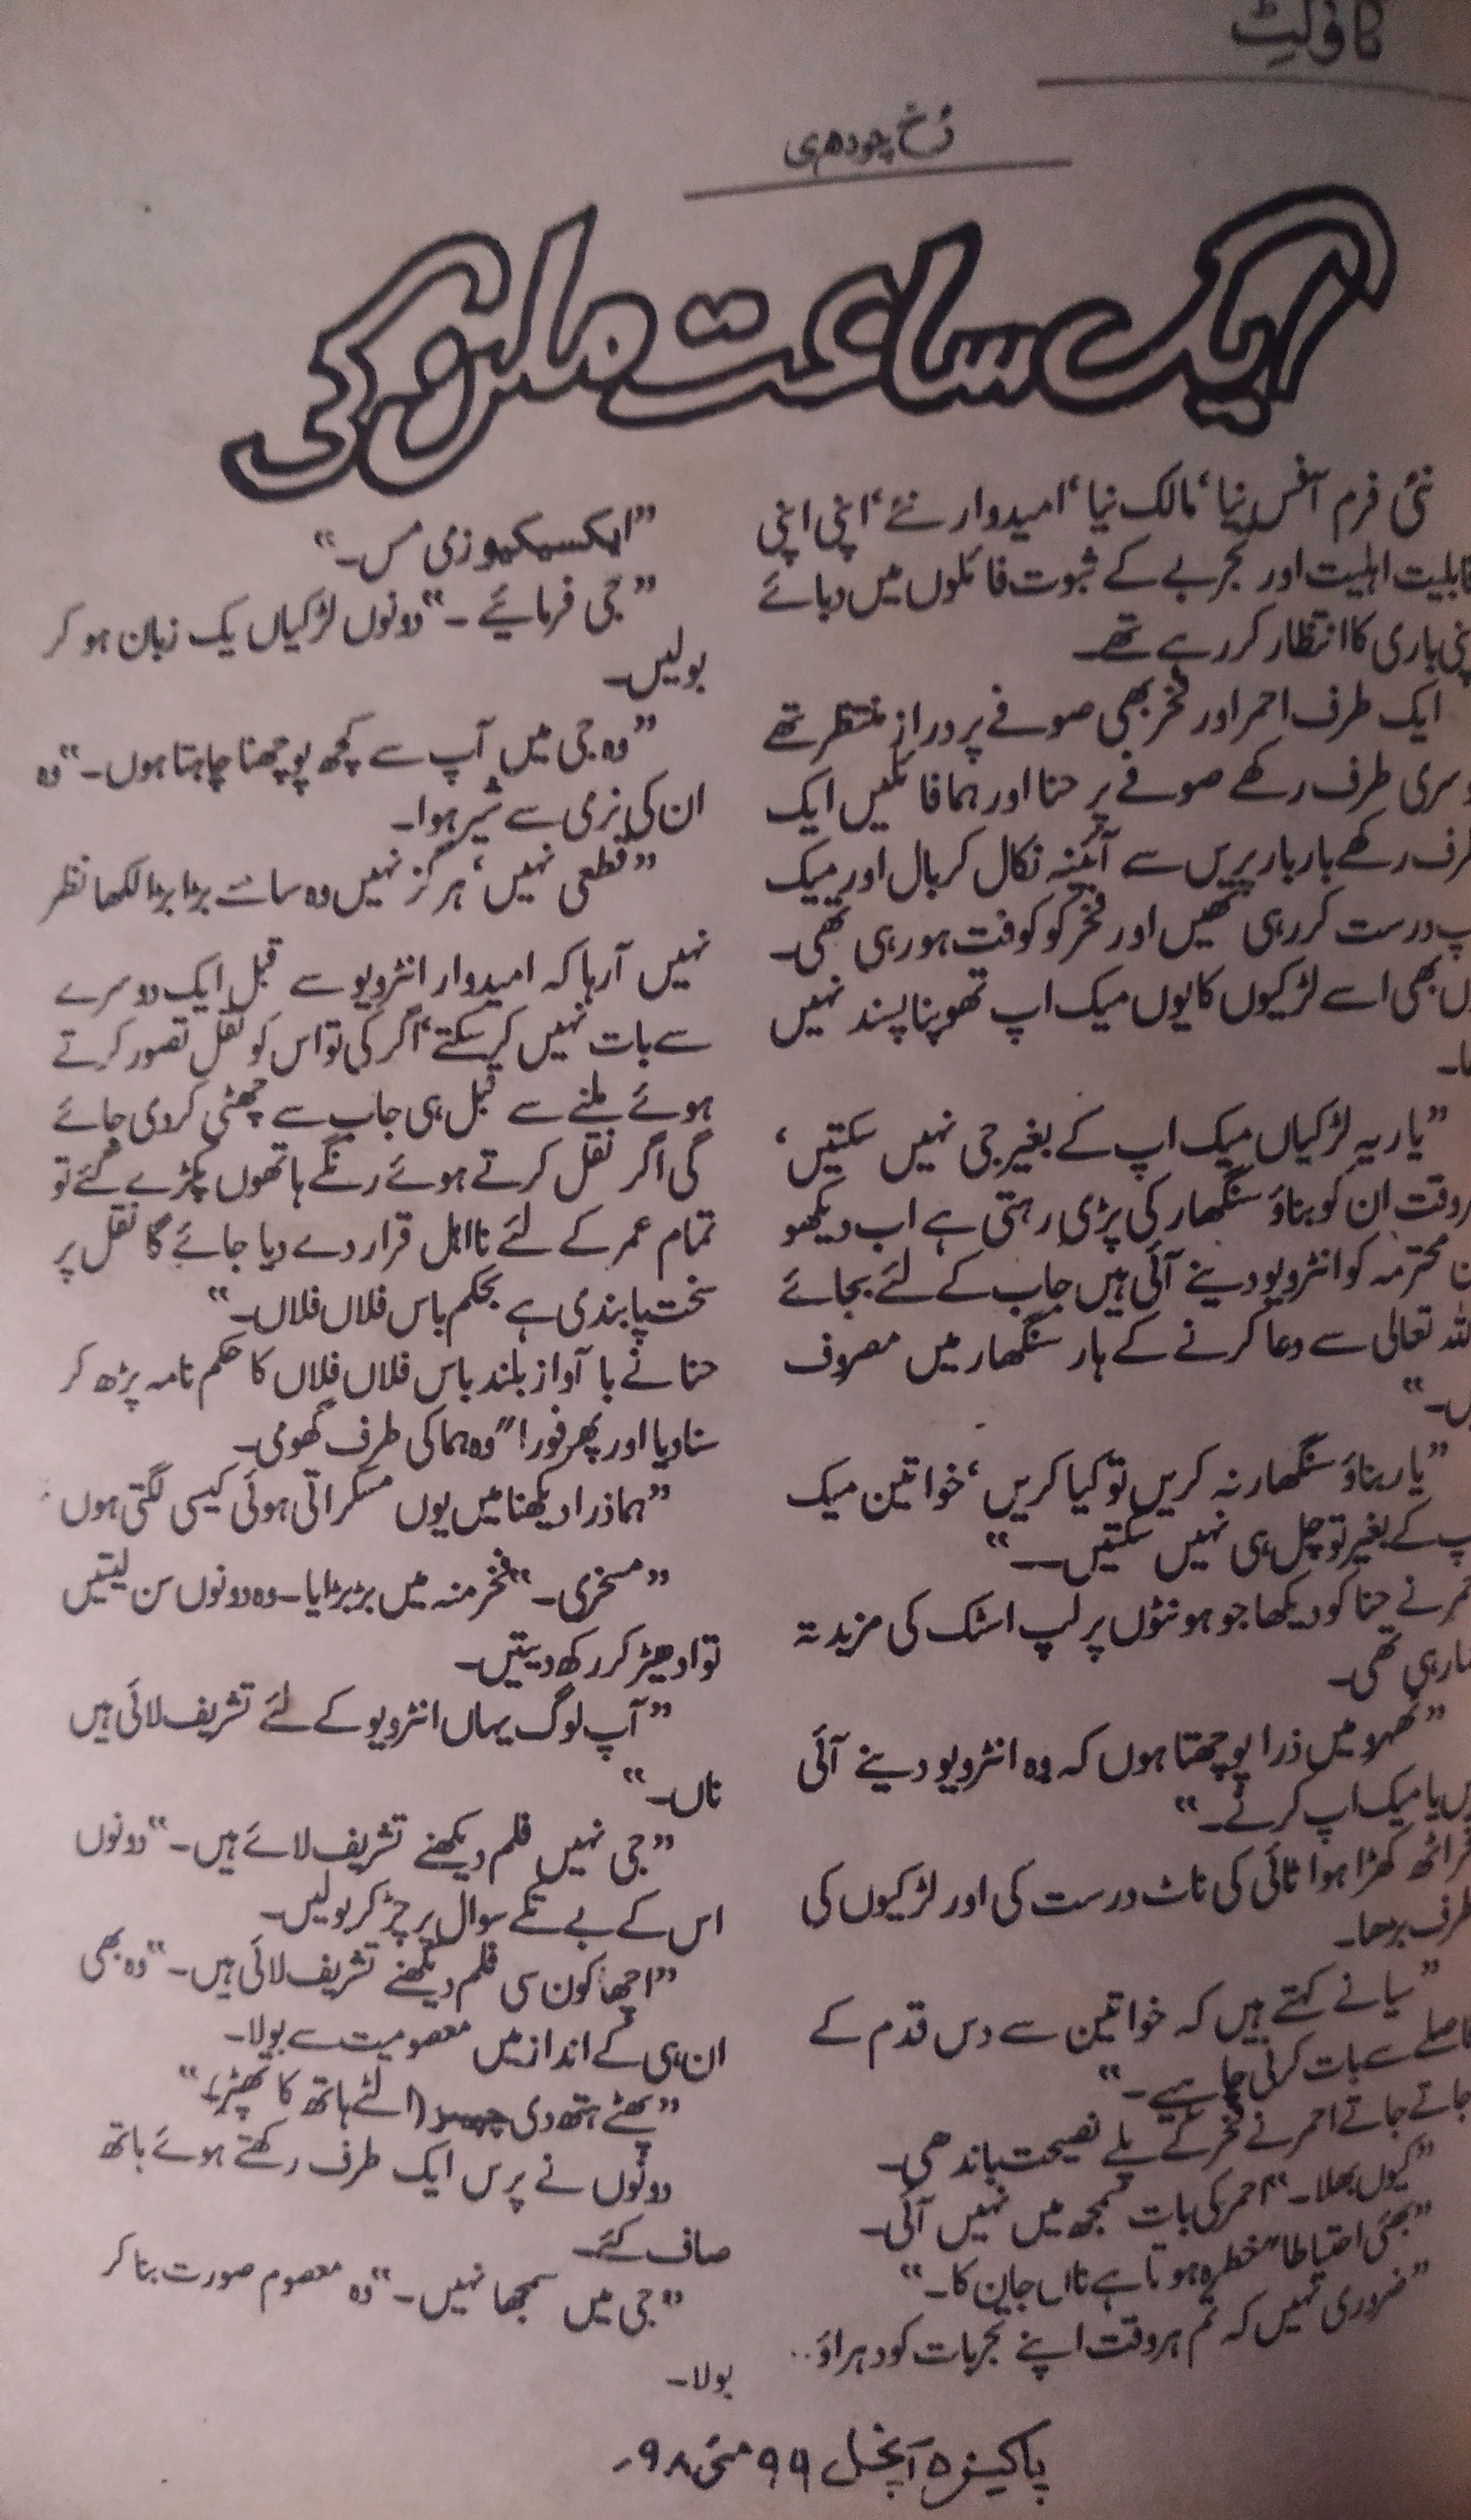 ناولٹ
رُخ چودھری
ایک ساعت ملن کی
نئی فرم آفس نیا، مالک نیا، امیدوار نئے، اپنی اپنی
قابلیت اہلیت اور تجربے کے ثبوت فائلوں میں دبائے
اپنی باری کا انتظار کر رہے تھے۔
ایک طرف احمر اور فخر بھی صوفے پر دراز منتظر تھے
دوسری طرف رکھے صوفے پر حنا اور ہما فائلیں ایک
طرف رکھے بار بار پرس سے آئینہ نکال کر بال اور میک
اپ درست کر رہی تھیں اور فخر کو کوفت ہو رہی تھی۔
یوں بھی اسے لڑکیوں کا یوں میک اپ تھوپنا پسند نہیں
تھا۔
”یار یہ لڑکیاں میک اپ کے بغیر جی نہیں سکتیں،
ہر وقت ان کو بناؤ سنگھار کی پڑی رہتی ہے اب دیکھو
ان محترمہ کو انٹرویو دینے آئی ہیں جاب کے لئے بجائے
اللہ تعالی سے دعا کرنے کے ہار سنگھار میں مصروف
ہیں۔“
”یار بناؤ سنگھار نہ کریں تو کیا کریں، خواتین میک
اپ کے بغیر تو چل ہی نہیں سکتیں۔۔۔“
احمر نے حنا کو دیکھا جو ہونٹوں پر لپ اسٹک کی مزید تہ
جما رہی تھی۔
”ٹھہرو میں ذرا پوچھتا ہوں کہ وہ انٹرویو دینے آئی
ہیں یا میک اپ کرنے۔“
فخر اٹھ کھڑا ہوا ٹائی کی ناٹ درست کی اور لڑکیوں کی
طرف بڑھا۔
”سیانے کہتے ہیں کہ خواتین سے دس قدم کے
فاصلے سے بات کرنی چاہیے۔“
جاتے جاتے احمر نے فخر کے پلے نصیحت باندھی۔
”کیوں بھلا۔“ احمر کی بات سمجھ میں نہیں آئی۔
”بھئی احتیاطاً خطرہ ہوتا ہے ناں جان کا۔“
”ضروری نہیں کہ تم ہر وقت اپنے تجربات کو دہراؤ..
”ایکسیکیوزی مس۔“
”جی فرمائیے۔“ دونوں لڑکیاں یک زبان ہو کر
بولیں۔
”وہ جی میں آپ سے کچھ پوچھنا چاہتا ہوں۔“ وہ
ان کی نرمی سے شیر ہوا۔
”قطعی نہیں، ہرگز نہیں وہ سامنے بڑا بڑا لکھا نظر
نہیں آرہا کہ امیدوار انٹرویو سے قبل ایک دوسرے
سے بات نہیں کر سکتے، اگر کی تو اس کو نقل تصور کرتے
ہوئے ملنے سے قبل ہی جاب سے چھٹی کر دی جائے
گی اگر نقل کرتے ہوئے رنگے ہاتھوں پکڑے گئے تو
تمام عمر کے لئے نااہل قرار دے دیا جائے گا نقل پر
سخت پابندی ہے بحکم باس فلاں فلاں۔“
حنا نے با آواز بلند باس فلاں فلاں کا حکم نامہ پڑھ کر
سنا دیا اور پھر فوراً وہ ہما کی طرف گھومی۔
”ہما ذرا دیکھنا میں یوں مسکراتی ہوئی کیسی لگتی ہوں
”مسخری۔“ فخر منہ میں بڑبڑایا۔ وہ دونوں سن لیتیں
تو ادھیڑ کر رکھ دیتیں۔
”آپ لوگ یہاں انٹرویو کے لئے تشریف لائی ہیں
ناں۔“
”جی نہیں فلم دیکھنے تشریف لائے ہیں۔“ دونوں
اس کے بے تکے سوال پر چڑ کر بولیں۔
”اچھا کون سی فلم دیکھنے تشریف لائی ہیں۔“ وہ بھی
ان ہی کے انداز میں معصومیت سے بولا۔
”پٹھے ہتھ دی (الٹے ہاتھ کا تھپڑ)۔“
دونوں نے پرس ایک طرف رکھتے ہوئے ہاتھ
صاف کئے۔
”جی میں سمجھا نہیں۔“ وہ معصوم صورت بنا کر
بولا۔
پاکیزہ آنچل ۹۹ مئی ۹۸ء